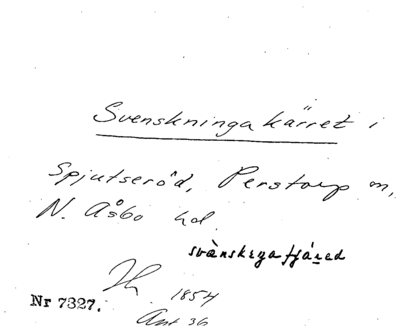 Svenskningakärret i
Spjutseröd, Perstorp m,
N. Åsbo hd.
svànskeŋafjäred
Nr 7327. 1854
Ant 36